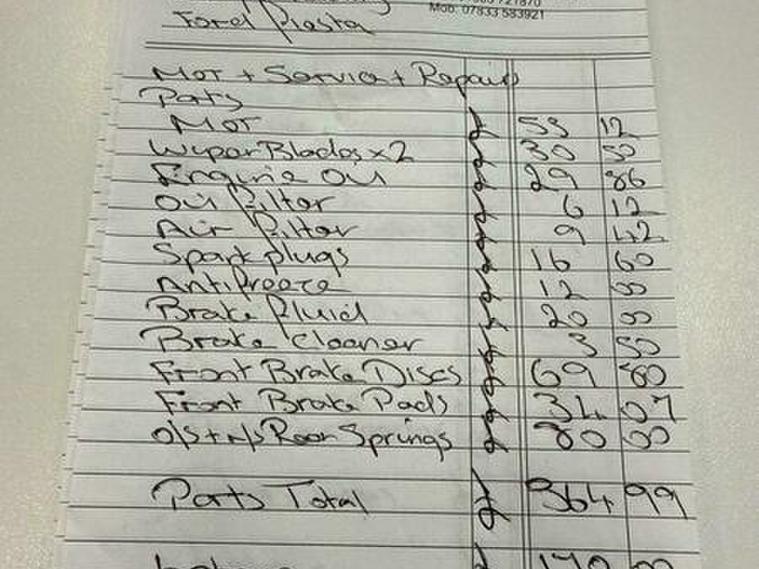 Mob: 07833 583921
Ford Fiesta
MOT + Service + Repairs
Parts
MOT £ 53 12
Wiper Blades x2 £ 30 50
Engine Oil £ 29 86
Oil Filter £ 6 12
Air Filter £ 9 42
Spark plugs £ 16 60
Antifreeze £ 12 00
Brake fluid £ 20 00
Brake Cleaner £ 3 50
Front Brake Discs £ 69 80
Front Brake Pads £ 34 07
O/S + N/S Rear Springs £ 80 00
Parts Total £ 364 99
£ 170 00